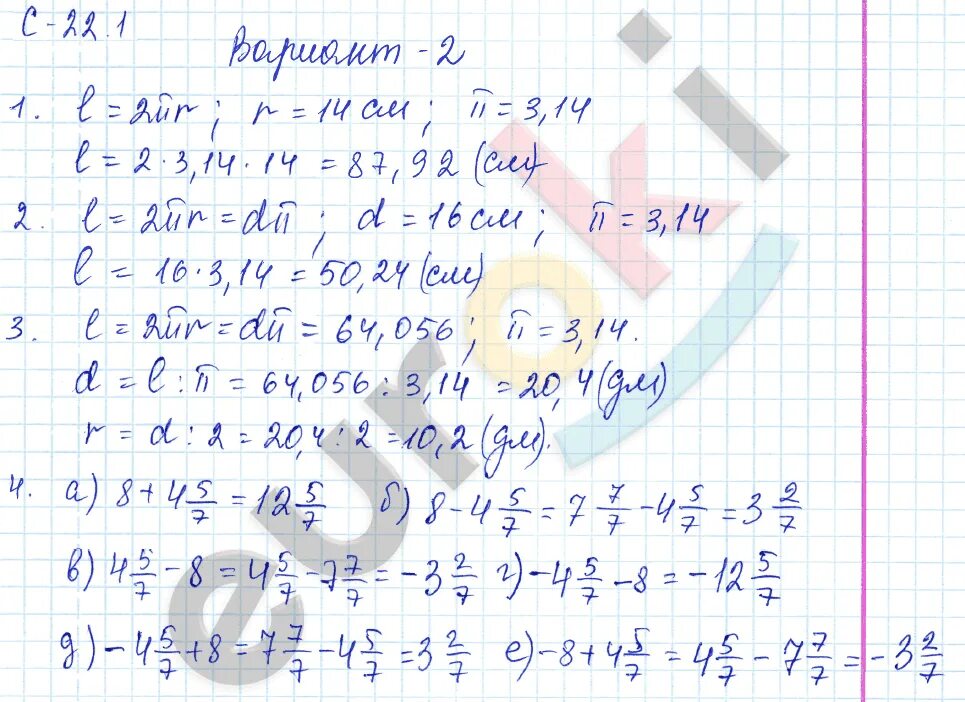 С-22.1
Вариант-2
1. l = 2πr; r = 14 см; π = 3,14
l = 2·3,14·14 = 87,92 (см)
2. l = 2πr = dπ; d = 16 см; π = 3,14
l = 16·3,14 = 50,24 (см)
3. l = 2πr = dπ = 64,056; π = 3,14.
d = l : π = 64,056 : 3,14 = 20,4 (дм)
r = d : 2 = 20,4 : 2 = 10,2 (дм).
4. а) 8 + 4 5/7 = 12 5/7 б) 8 - 4 5/7 = 7 7/7 - 4 5/7 = 3 2/7
в) 4 5/7 - 8 = 4 5/7 - 7 7/7 = -3 2/7 г) -4 5/7 - 8 = -12 5/7
д) -4 5/7 + 8 = 7 7/7 - 4 5/7 = 3 2/7 е) -8 + 4 5/7 = 4 5/7 - 7 7/7 = -3 2/7
euroki